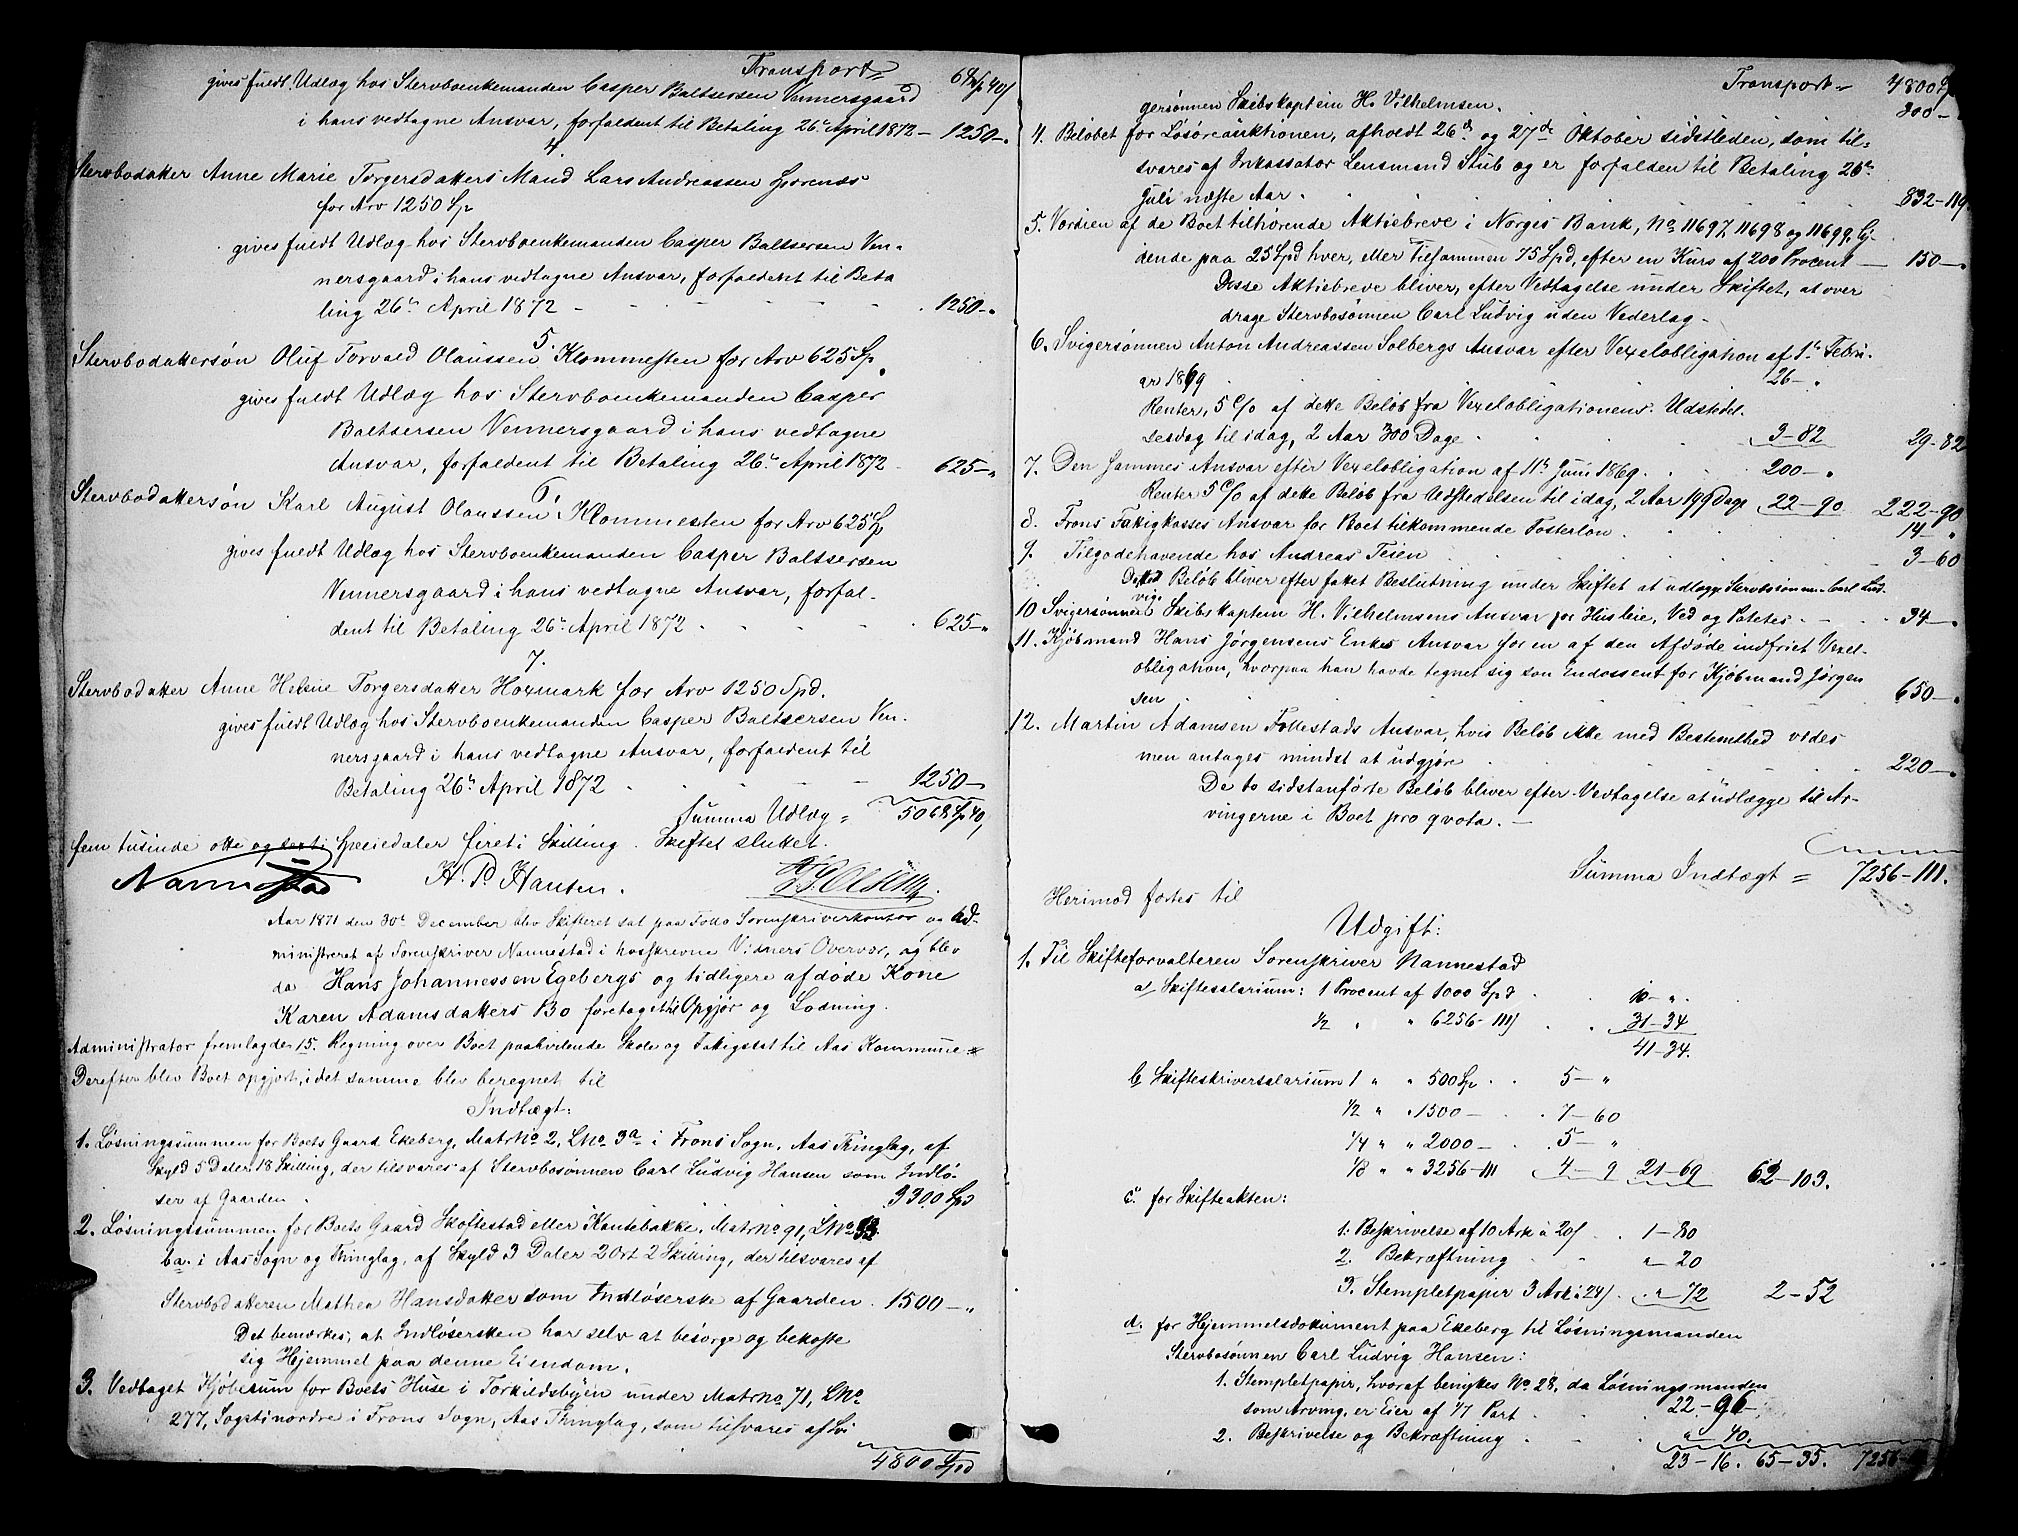 Transport =
gives fuldt Udlæg hos Stervboenkemanden Casper Baltsersen Vennersgaard
i hans vedtagne Ansvar, forfaldent til Betaling 26de April 1872 — 1250 - "
4.
Stervbodatter Anne Marie Torgersdatters Mand Lars Andreassen
for Arv 1250 Sp
gives fuldt Udlæg hos Stervboenkemanden Casper Baltsersen Ven-
nersgaard i hans vedtagne Ansvar, forfaldent til Beta
ling 26de April 1872 - 1250 - "
5.
Stervbodattersøn Oluf Torvald Olaussen Klommesten for Arv 625 Sp
gives fuldt Udlæg hos Stervboenkemanden Casper
Baltsersen Vennersgaard i hans vedtagne
Ansvar, forfaldent til Betaling 26de April 1872 - 625 - "
6.
Stervbodattersøn Karl August Olaussen Klommesten for Arv 625 Sp
gives fuldt Udlæg hos Stervboenkemanden Casper Baltsersen
Vennersgaard i hans vedtagne Ansvar, forfal-
dent til Betaling 26de April 1872 - 625 - "
7.
Stervbodatter Anne Helene Torgersdatter Hoxmark for Arv 1250 Spd.
gives fuldt Udlæg hos Stervboenkemanden Casper Baltsersen Ven-
nersgaard i hans vedtagne Ansvar, forfaldent til
Betaling 26de April 1872 - 1250 -
Summa Udlæg = 5068 Sp 40,
fem tusinde otte og sexti Speciedaler fireti Skilling. Skiftet sluttet.
Nannestad H. P. Hansen.
Aar 1871 den 30te December blev Skifteret sat paa Follo Sorenskriverkontor og ad-
ministreret af Sorenskriver Nannestad i hosskrevne Vidners Overvær, og blev
da Hans Johannessen Egebergs og tidligere afdøde Kone
Karen Adamsdatters Bo foretaget til Opgjør og Lodning.
Administrator fremlagde 15. Regning over Boet paahvilende Skole og Fattigskat til Aas Kommune
Derefter blev Boet opgjort, idet samme blev beregnet til
Indtægt:
1. Løsningssummen for Boets Gaard Ekeberg, Matr No 2, L No 3a i Frons Sogn, Aas Thinglag, af
Skyld 5 Daler 18 Skilling, der tilsvares af Stervbosønnen Carl Ludvig Hansen som Indlø-
ser af Gaarden . 3300 Spd
2. Løsningssummen for Boets Gaard Skoftestad eller Kantebakke, Matr No 91, L No
ba. i Aas Sogn og Thinglag, af Skyld 3 Daler 2 Ort 2 Skilling, der tilsvares af
Stervbodatteren Mathea Hansdatter som Indløserske af Gaarden . 1500 - "
Det bemærkes, at Indløsersken har selv at besørge og bekoste
sig Hjemmel paa denne Eiendom.
3. Vedtaget Kjøbesum for Boets Huse i Torkildsbyen under Matr No 71, L No
277, Sogstinordre i Frons Sogn, Aas Thinglag, som tilsvares af Svi
4800 Spd
Transport = 4800 Sp
gersønnen Skibskaptein H. Vilhelmsen. 200 -
4. Beløbet for Løsøreauktionen, afholdt 26de og 27de Oktober sidstleden, som til-
svares af Inkassator Lensmand Stub og er forfalden til Betaling 26de
Juli næste Aar. 832 - 119
5. Værdien af de Boet tilhørende Aktiebreve i Norges Bank, No 11697, 11698 og 11699, ly-
dende paa 25 Spd hver, eller tilsammen 75 Spd, efter en Kurs af 200 Procent — 150 - "
Disse Aktiebreve bliver, efter Vedtagelse under Skiftet, at over
drage Stervbosønnen Carl Ludvig uden Vederlag -
6. Svigersønnen Anton Andreassen Solbergs Ansvar efter Vexelobligation af 1ste Febru-
ar 1869 26 - "
Renter, 5 % af dette Beløb fra Vexelobligationens Udstedel.
sesdag til idag, 2 Aar 300 Dage 3 - 82 29 - 82
7. Den Sammes Ansvar efter Vexelobligation af 11te Juni 1869 . 200 - "
Renter 5 % af dette Beløb fra Udstedelsen til idag, 2 Aar 199 Dage 22 - 90 222 - 90
8. Frons Fattigkasses Ansvar for Boet tilkommende Fosterløn . 14 - "
9. Tilgodehavende hos Andreas Teien 3 - 60
Dette Beløb bliver efter fattet Beslutning under Skiftet at udlægge Stervbosønnen Carl Lud-
vig.
10 Svigersønnen Skibskaptein H. Vilhelmsens Ansvar for Husleie, Ved og Poteter - 34 - "
11. Kjøbmand Hans Jørgensens Enkes Ansvar for en af den Afdøde indfriet Vexel-
obligation, hvorpaa han havde tegnet sig som Endossent for Kjøbmand Jørgen
sen 650 - "
12. Martin Adamsen Follestads Ansvar, hvis Beløb ikke med Bestemthed vides
men antages mindst at udgjøre 220 - "
De to sidstanførte Beløb bliver efter Vedtagelse at udlægge til Ar-
vingerne i Boet pro qvota. -
Summa Indtægt = 7256 - 111.
Herimod føres til
Udgift:
1. Til Skifteforvalteren Sorenskriver Nannestad
a) Skiftesalarium: 1 Procent af 1000 Spd . 10 - " .
1/2 " " 6256 - 111 . 31 - 34
41 - 34.
b Skifteskriversalarium 1 " " 500 Sp . 5 - "
1/2 " " 1500 - . 7 - 60
1/4 " " 2000 - . 5 - "
1/8 " " 3256 - 111 4 - 9 21 - 69 62 - 103.
c. for Skifteakten:
1. Beskrivelse af 10 Ark à 20 . 1 - 80
2. Bekræftning " - 20
3. Stempletpapir 3 Ark à 24 . " - 72 2 - 52
d. for Hjemmelsdokument paa Ekeberg til Løsningsmanden
Stervbosønnen Carl Ludvig Hansen:
1. Stempletpapir, hvoraf benyttes No 28, da Løsningsmanden
som Arving, er Eier af 1/7 Part 22 - 96
2. Beskrivelse og Bekræftning " - 40.
23 - 16. 65 - 35. 7256